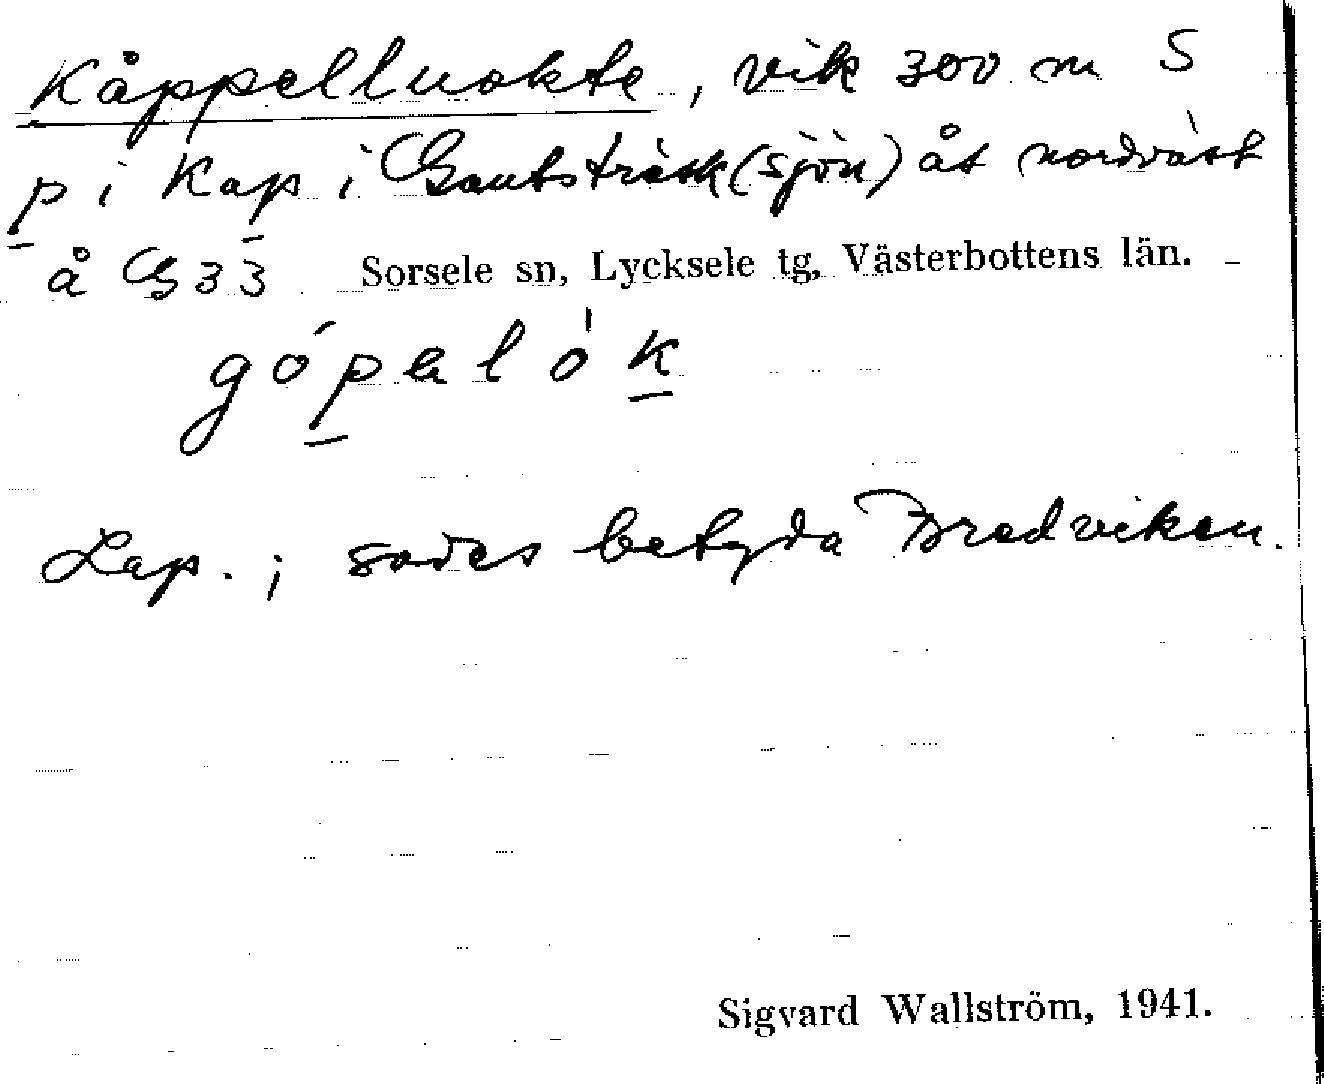 Kåppelluokte, vik 300 m S
p i Kap i Gautsträsk (sjön) åt nordväst
å G 33 Sorsele sn, Lycksele tg, Västerbottens län.
gópalók
Lap.; sades betyda Bredviken.
Sigvard Wallström, 1941.